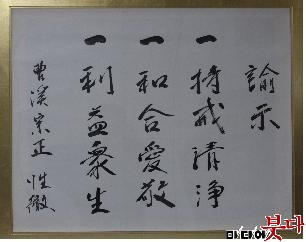 諭示
一 持戒清淨
一 和合愛敬
一 利益衆生
曹溪宗正 性徹
붓다